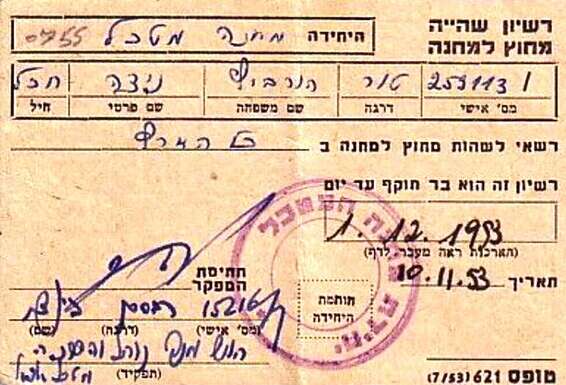 רשיון שהייה
מחוץ למחנה
היחידה מחנה מטכל 0755
259113 טור הורביץ ניצה חכל
מס' אישי דרגה שם משפחה שם פרטי חיל
רשאי לשהות מחוץ למחנה ב כל הארץ
רשיון זה הוא בר תוקף עד יום
1.12.1953
(הארכות ראה מעבר לדף)
תאריך 10.11.53
חתימת
המפקד
חותמת
היחידה
מחנה המטכל
15216
(מס' אישי) (דרגה) (שם)
(תפקיד)
טופס 621 (7/53)